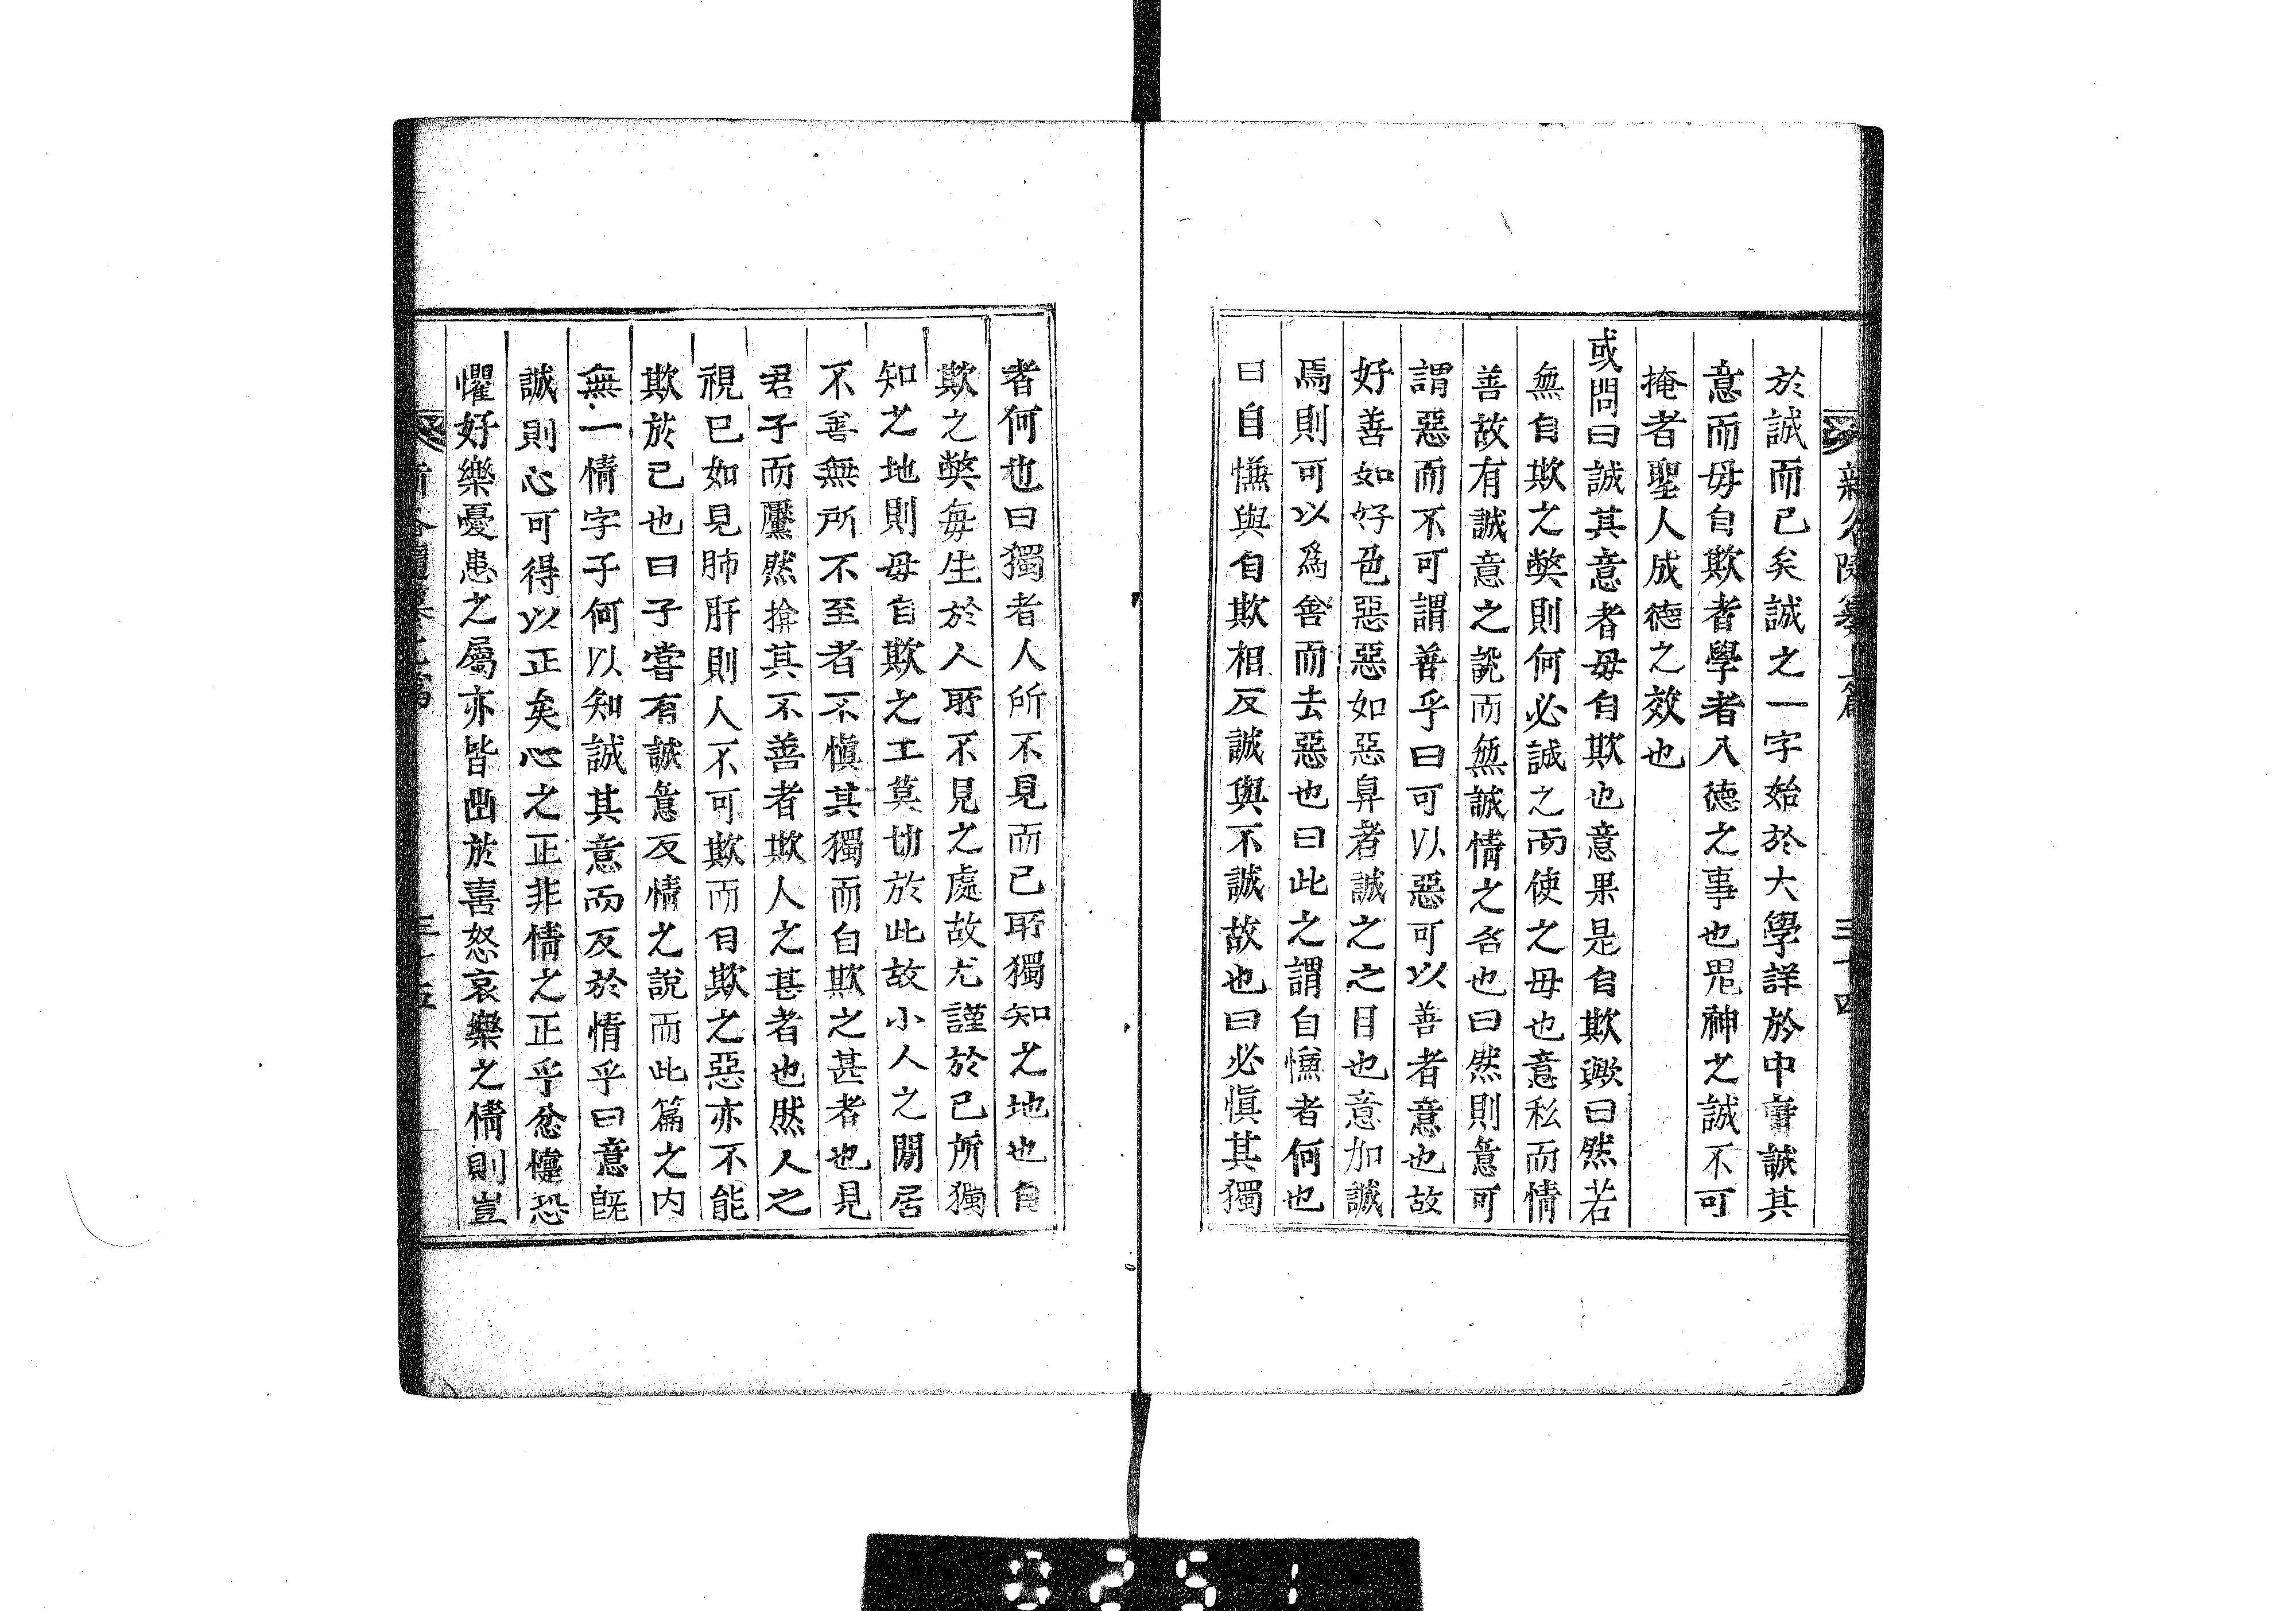 於誠而已矣誠之一字始於大學詳於中庸誠其
意而毋自欺者學者入德之事也鬼神之誠不可
掩者聖人成德之效也
或問曰誠其意者毋自欺也意果是自欺歟曰然若
無自欺之獘則何必誠之而使之毋也意私而情
善故有誠意之說而無誠情之名也曰然則意可
謂惡而不可謂善乎曰可以惡可以善者意也故
好善如好色惡惡如惡臭者誠之之目也意加誠
焉則可以爲善而去惡也曰此之謂自慊者何也
曰自慊與自欺相反誠與不誠故也曰必愼其獨
者何也曰獨者人所不見而已所獨知之地也自
欺之獘每生於人所不見之處故尤謹於已所獨
知之地則毋自欺之工莫切於此故小人之閒居
不善無所不至者不愼其獨而自欺之甚者也見
君子而厭然揜其不善者欺人之甚者也然人之
視已如見肺肝則人不可欺而自欺之惡亦不能
欺於已也曰子嘗有誠意反情之說而此篇之內
無一情字子何以知誠其意而反於情乎曰意旣
誠則心可得以正矣心之正非情之正乎忿懥恐
懼好樂憂患之屬亦皆出於喜怒哀樂之情則豈
三十四
0251